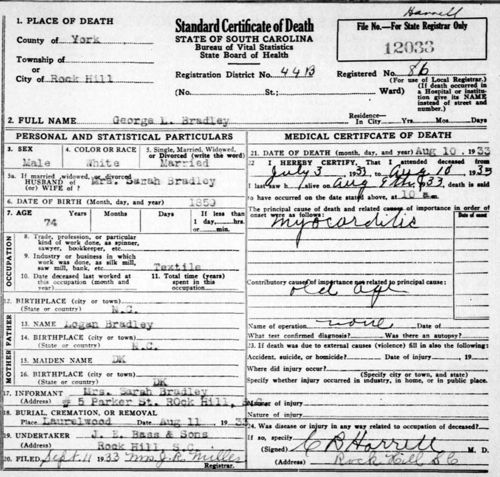 Harrell
1. PLACE OF DEATH
County of York
Township of
or
City of Rock Hill
Standard Certificate of Death
STATE OF SOUTH CAROLINA
Bureau of Vital Statistics
State Board of Health
Registration District No. 44B
(No. St.; Ward)
File No.—For State Registrar Only
12033
Registered No. 86
(For use of Local Registrar.)
(If death occurred in a Hospital or institution give its NAME instead of street and number.)
2. FULL NAME George L. Bradley
Residence—
In City Yrs. Mos. Days
PERSONAL AND STATISTICAL PARTICULARS
3. SEX
Male
4. COLOR OR RACE
White
5. Single, Married, Widowed, or Divorced (write the word)
Married
5a. If married, widowed, or divorced
HUSBAND of
(or) WIFE of
Mrs. Sarah Bradley
6. DATE OF BIRTH (Month, day, year) 1859
7. AGE Years Months Days If less than 1 day, hrs. or min.
74
OCCUPATION
8. Trade, profession, or particular kind of work done, as spinner, sawyer, bookkeeper, etc.
9. Industry or business in which work was done, as silk mill, saw mill, bank, etc. Textile
10. Date deceased last worked at this occupation (month and year)
11. Total time (years) spent in this occupation
12. BIRTHPLACE (city or town)
(State or country) N.C.
FATHER
13. NAME Logan Bradley
14. BIRTHPLACE (city or town)
(State or country) N.C.
MOTHER
15. MAIDEN NAME DK
16. BIRTHPLACE (city or town)
(State or country) DK
17. INFORMANT Mrs. Sarah Bradley
(Address) # 5 Parker St. ROck Hill, S.C.
18. BURIAL, CREMATION, OR REMOVAL
Place Laurelwood Date Aug 11, 1933
19. UNDERTAKER J. E. Bass & Sons
(Address) Rock Hill S.C.
20. FILED Sept 11 1933 Mrs J. R. Miller
Registrar.
MEDICAL CERTIFCATE OF DEATH
21. DATE OF DEATH (month, day, and year) Aug 10, 1933
22. I HEREBY CERTIFY, That I attended deceased from
July 3 1931, to Aug 10, 1933
I last saw h alive on Aug 9th, 33, death is said
to have occurred on the date stated above, at 10 m.
The principal cause of death and related causes of importance in order of onset were as follows: Date of onset
Myocarditis
Contributory causes of importance not related to principal cause:
old age
Name of operation none Date of
What test confirmed diagnosis? Was there an autopsy?
23. If death was due to external causes (violence) fill in also the following:
Accident, suicide, or homicide? Date of injury 19
Where did injury occur?
(Specify city or town, and state)
Specify whether injury occurred in industry, in home, or in public place.
Manner of injury
Nature of injury
24. Was disease or injury in any way related to occupation of deceased?
If so, specify
(Signed) C B Harrell M. D.
(Address) Rock Hill S C